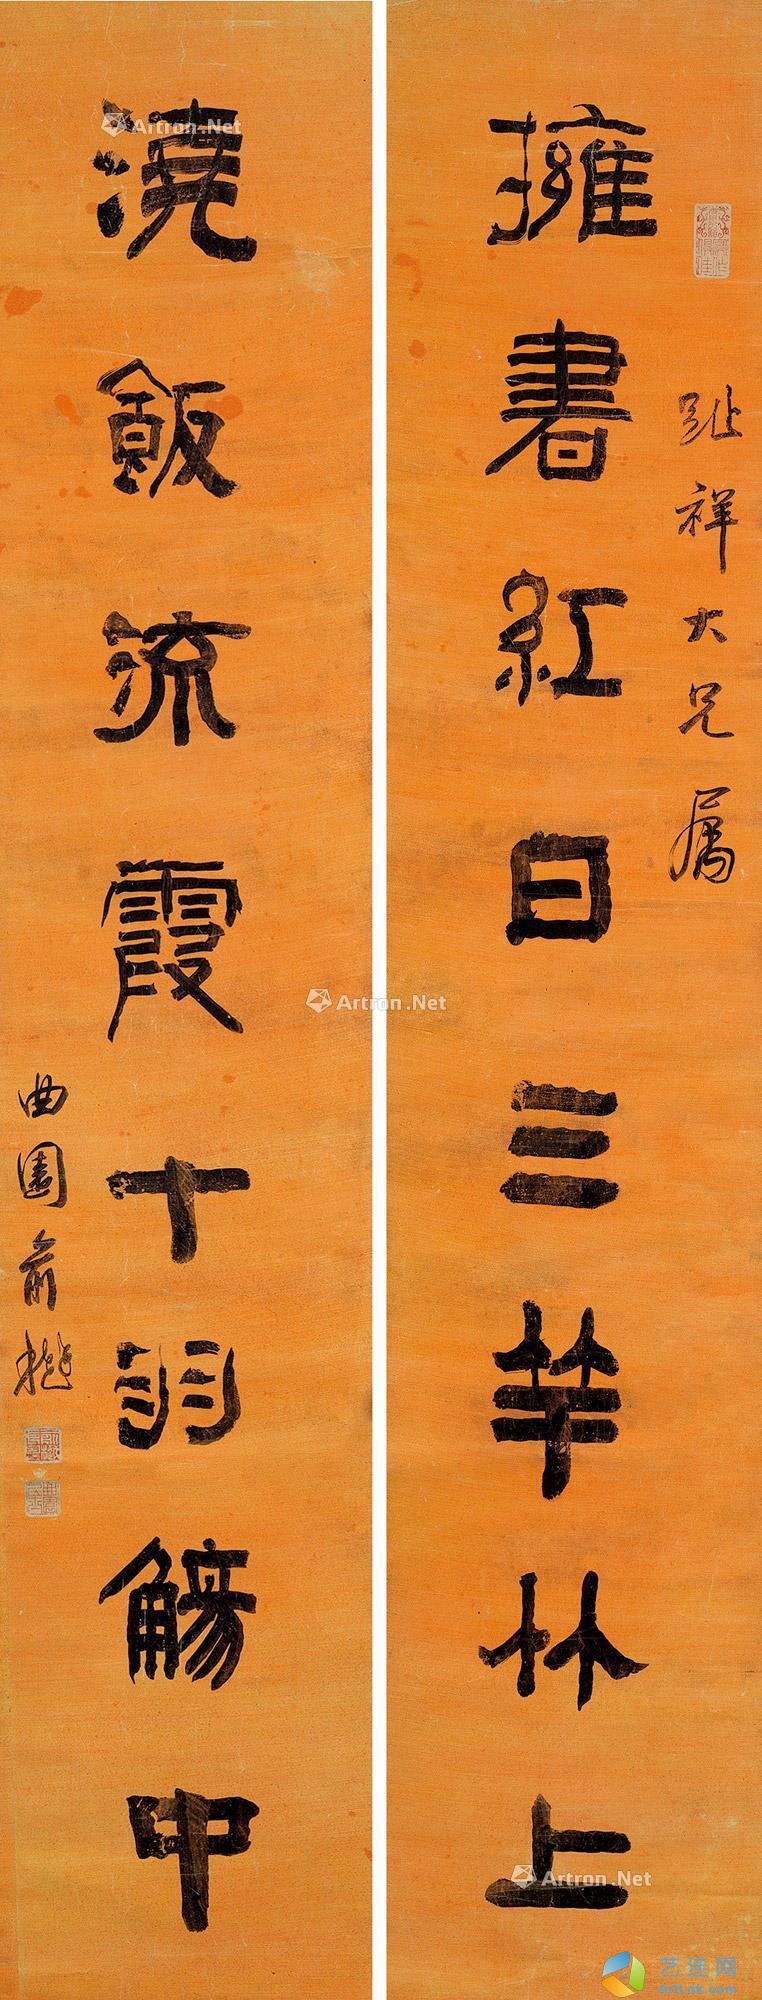 擁書紅日三竿林上
趾祥大兄屬
澆飯流霞十羽觴中
曲園俞樾
Artron.Net
Artron.Net
Artron.Net
艺连网
ArtLnk.Com